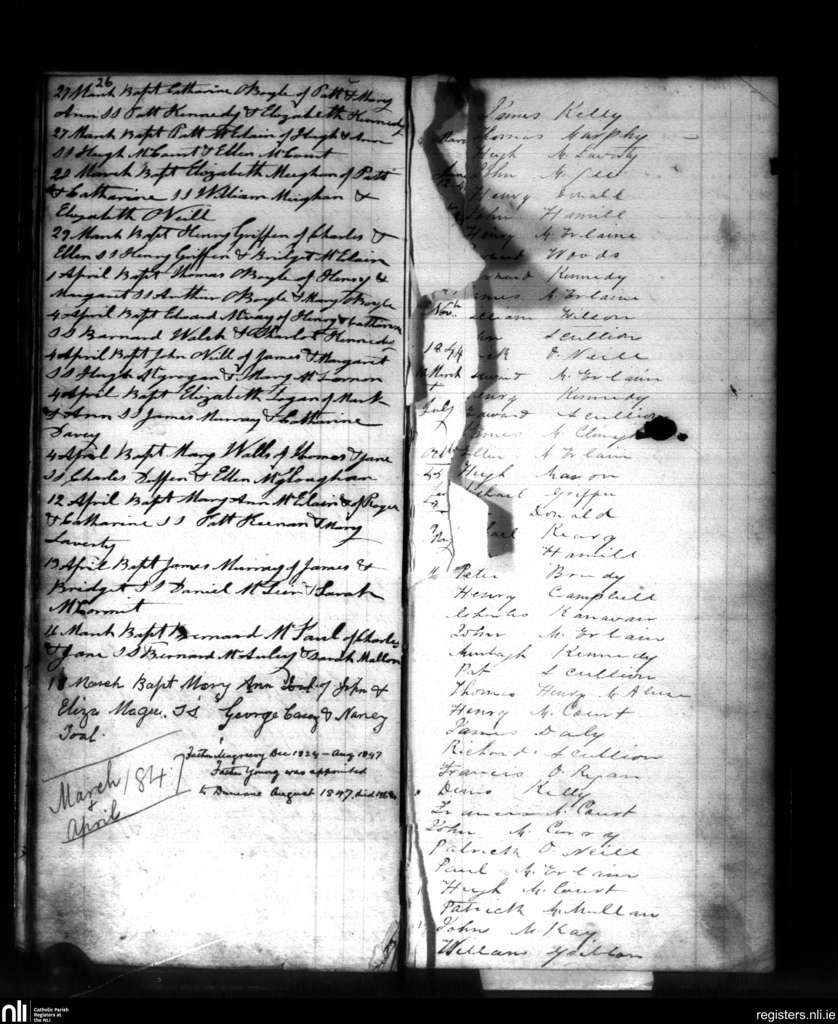 26
27 March Bapt Catharine O Boyle of Patt & Mary
Ann SS Patt Kennedy & Elizabeth Kennedy
27 March Bapt Patt McClain of Hugh & Ann
SS Hugh McCourt & Ellen McCourt
28 March Bapt Elizabeth Meighan of Patt
& Catharine SS William Meighan &
Elizabeth O Neill
29 March Bapt Henry Griffen of Charles &
Ellen SS Henry Griffen & Bridget McClain
1 April Bapt Thomas O Boyle of Henry &
Margaret SS Arthur O Boyle & Mary O Boyle
4 April Bapt Edward of Henry & Catharine
SS Barnard Walsh & Kennedy
4 April Bapt John O Neill of James & Margaret
SS Hugh & Mary
4 April Bapt Elizabeth Logan of Mark
& Ann SS James Murray & Catharine
Davey
4 April Bapt Mary Walls of Thomas & Jane
SS Charles Diffen & Ellen
12 April Bapt Mary Ann McClain of Roger
& Catharine SS Patt Keenan & Mary
Laverty
13 April Bapt James Murray of James &
Bridget SS Daniel & Sarah
McCormet
14 March Bapt Bernard of Charles
& Jane SS Bernard McAuley & Sarah Mallon
18 March Bapt Mary Ann of John &
Eliza Magee. SS George Casey & Nancy
Toal.
Father Magreevy Dec 1824 - Aug 1847
Father Young was appointed
to Duneane August 1847, died
March 1847
&
April
James Kelly
Thomas Murphy
Hugh McLaverty
John McGee
Henry Donald
John Hamill
Henry McErlaine
Woods
Kennedy
James McErlaine
Nov. William
Scullion
184 O Neill
March McErlain
Henry Kennedy
July Edward Scullion
Thomas
McErlain
Hugh Mason
Michael Griffin
Donald
Keary
Hamill
Peter Brady
Henry Campbell
Charles Kanavan
John McErlain
Murtagh Kennedy
Pat Scullion
Thomas Henry
Henry McCourt
James Daly
Richard Scullion
Francis O Ryan
Denis Kelly
Francis McCourt
John
Patrick O Neill
Paul McErlain
Hugh McCourt
Patrick McMullan
John McKay
William
nli
Catholic Parish
Registers at
the NLI
registers.nli.ie